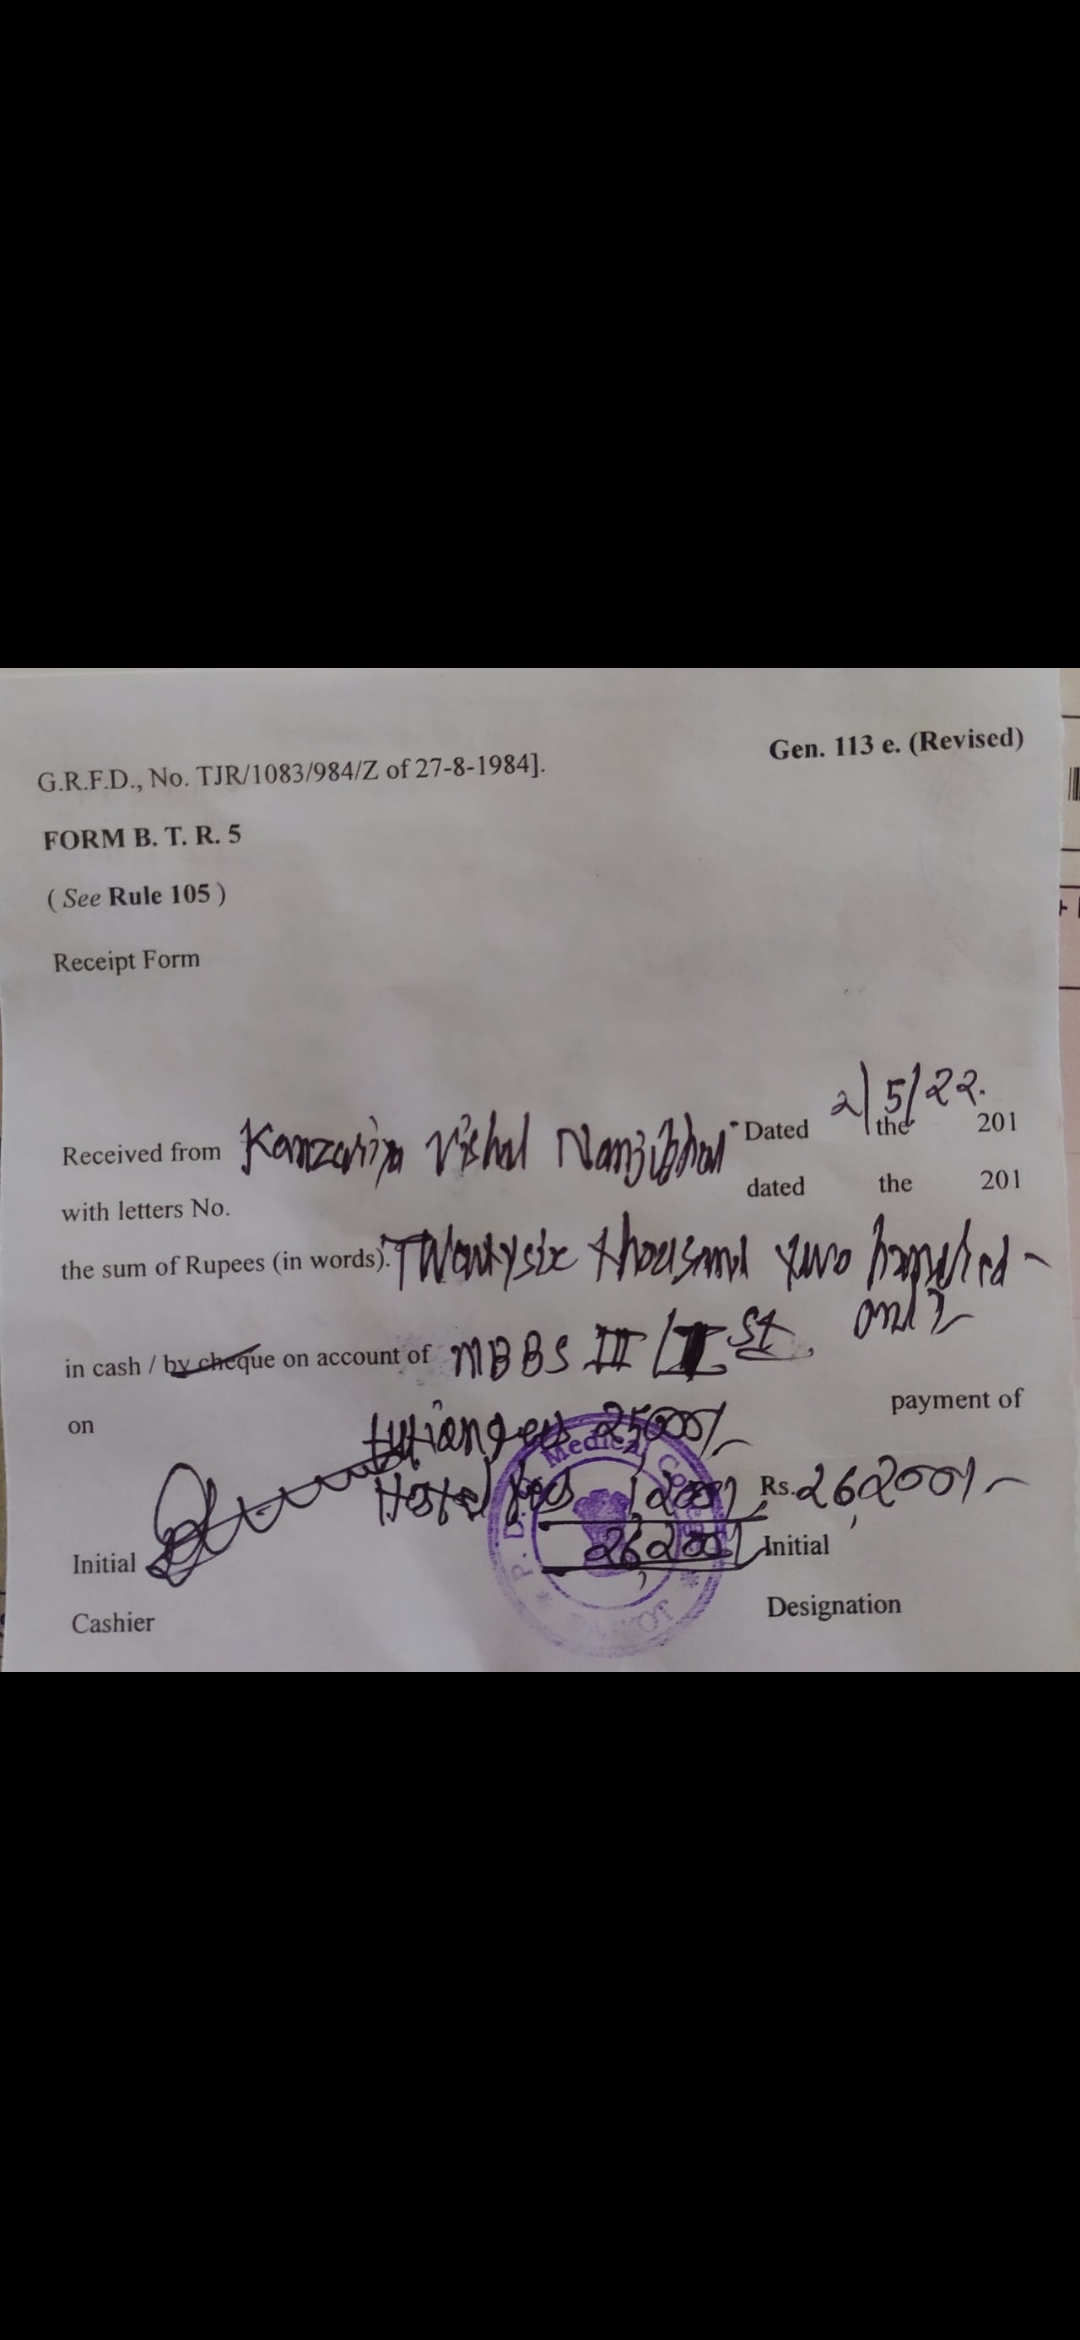 Gen. 113 e. (Revised)
G.R.F.D., No. TJR/1083/984/Z of 27-8-1984].
FORM B. T. R. 5
( See Rule 105 )
Receipt Form
Received from Kanzariya Vishal Nanjibhai Dated 2/5/22. the 201
with letters No. dated the 201
the sum of Rupees (in words). Twentysix thousand two hundred -
only
in cash / by cheque on account of MBBS III / I st.
on payment of
tution fees 25000/-
Hostel fees 1,200/- Rs. 26,200/-
26,200/-
Initial Initial
Cashier Designation
P. D. U. Medical College
* RAJKOT *